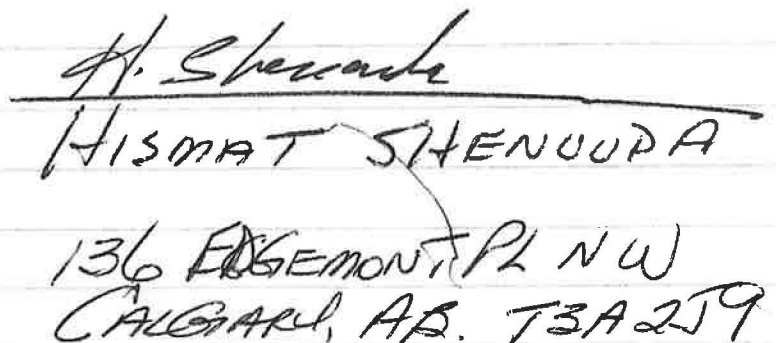 H. Shenouda
HISMAT SHENOUDA
136 EDGEMONT PL NW
CALGARY, AB. T3A2J9